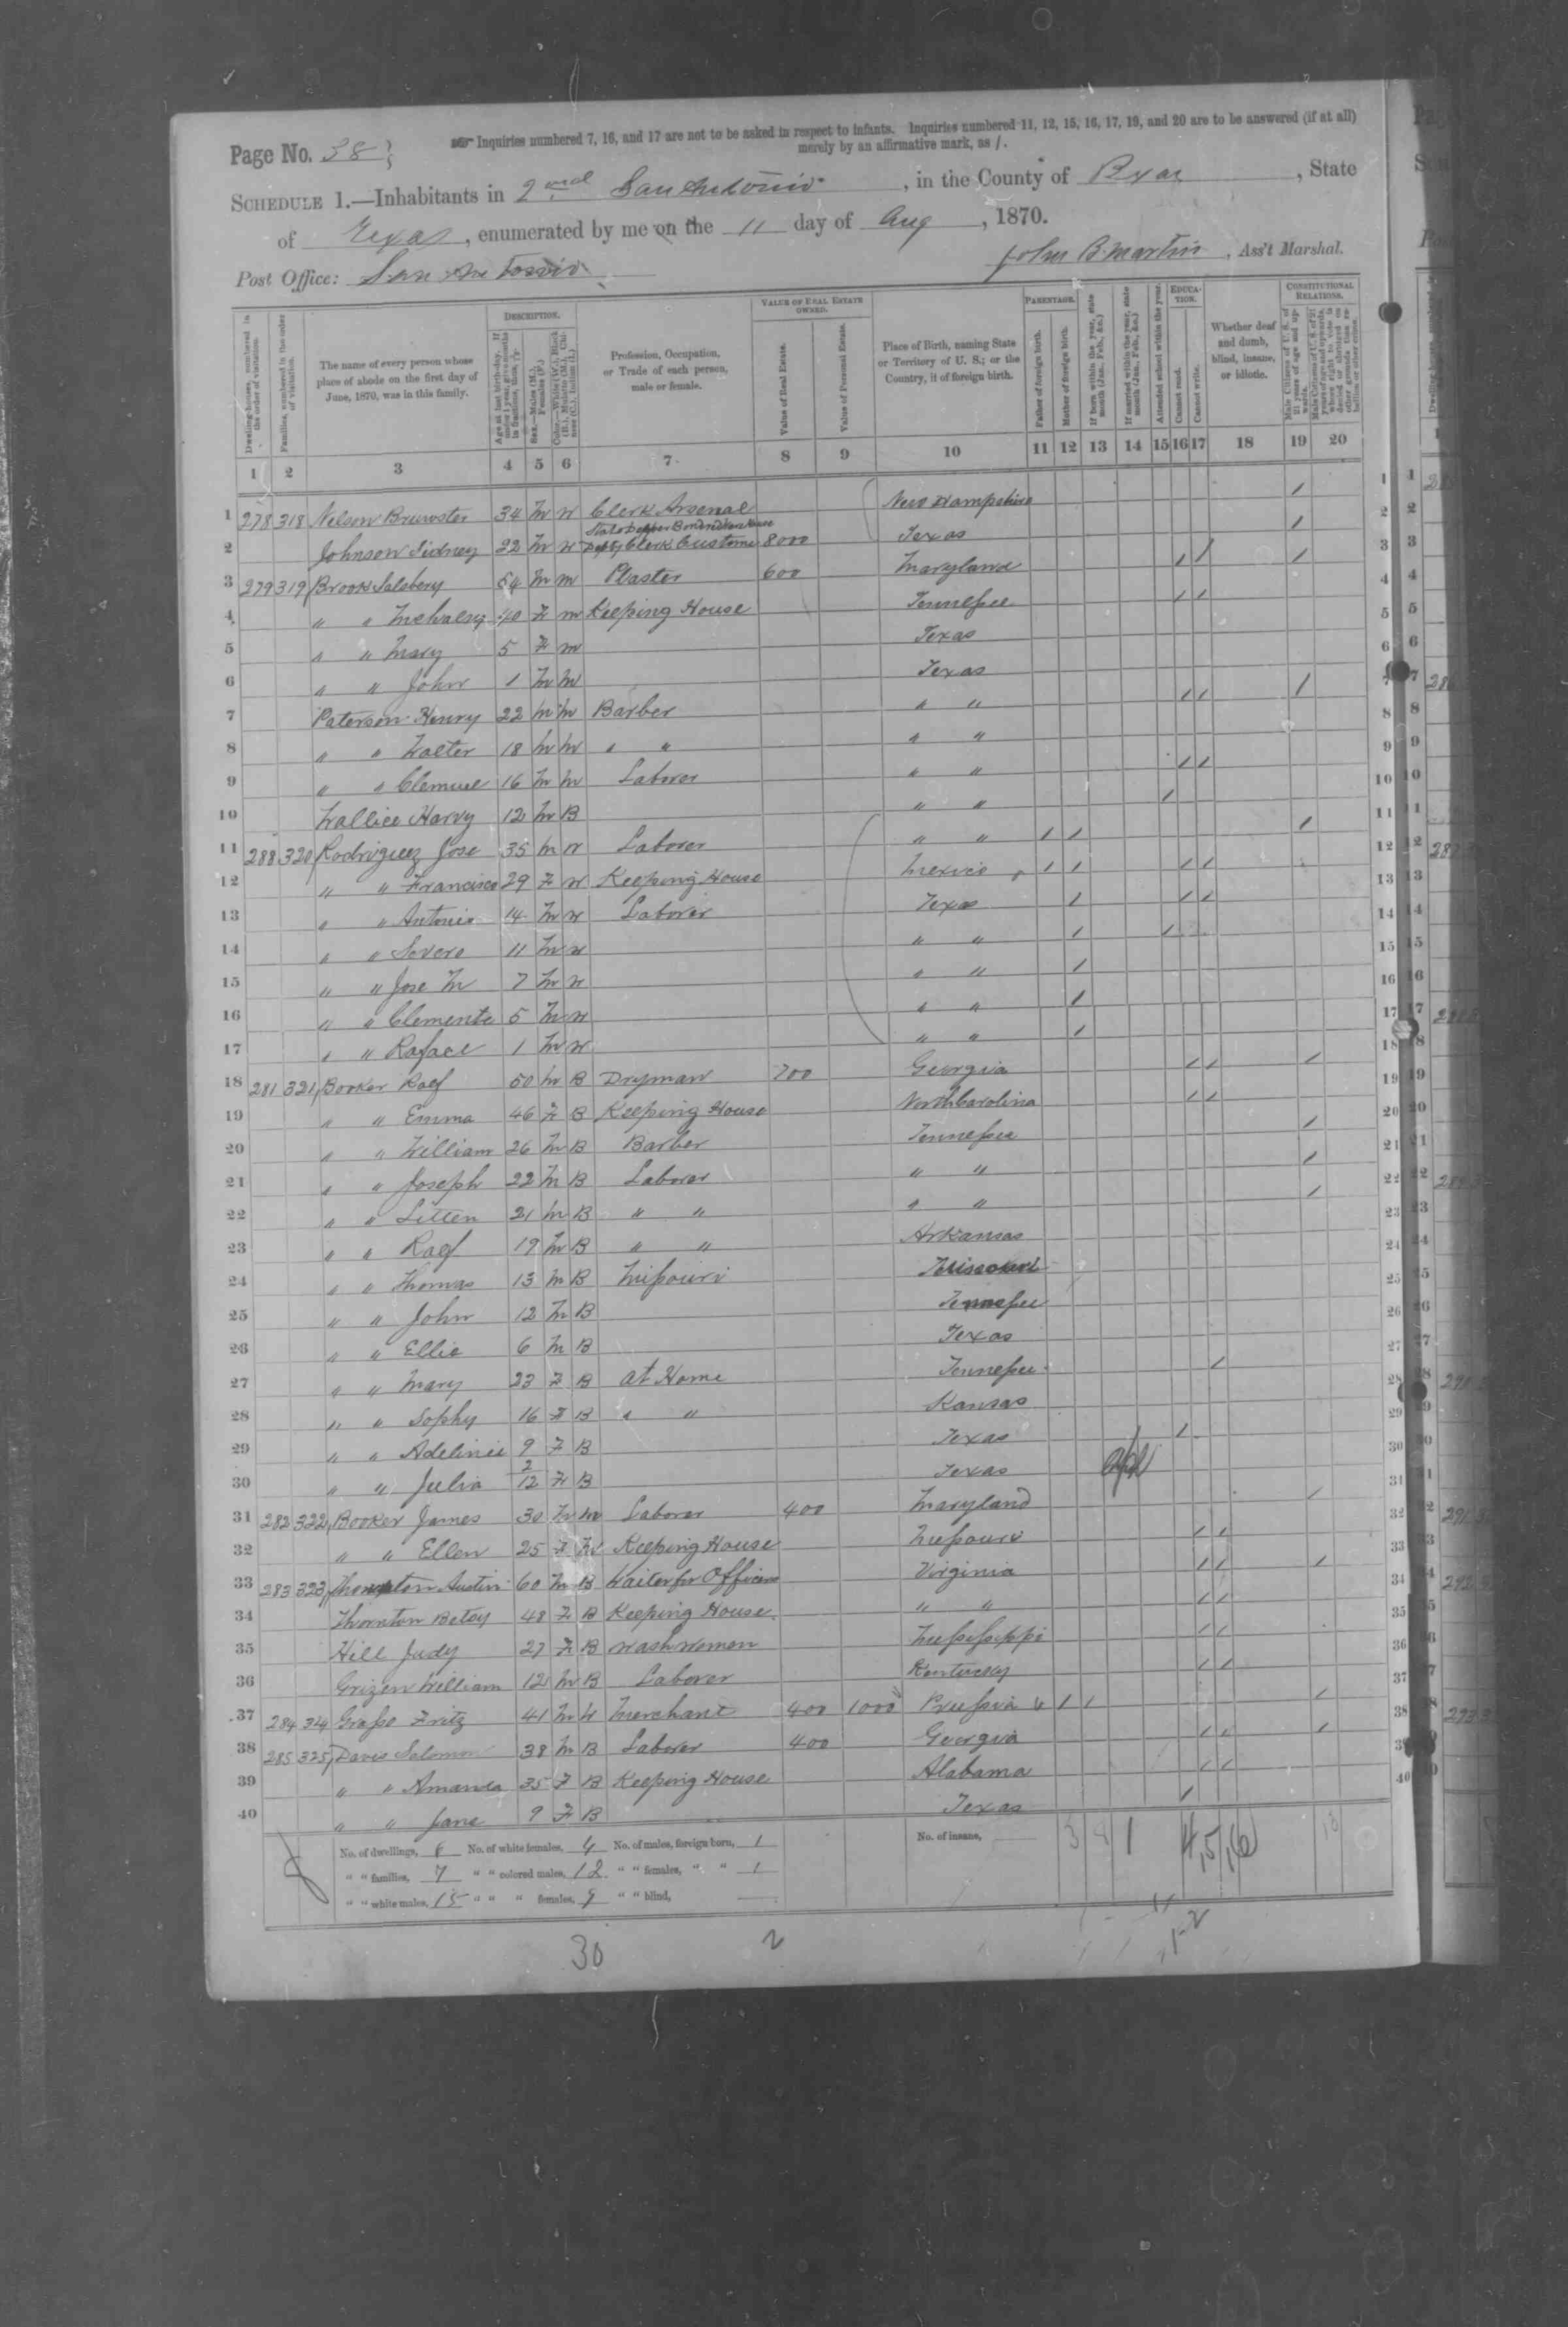 Page No. 38
☞ Inquiries numbered 7, 16, and 17 are not to be asked in respect to infants. Inquiries numbered 11, 12, 15, 16, 17, 19, and 20 are to be answered (if at all)
merely by an affirmative mark, as /.
SCHEDULE 1.—Inhabitants in 2nd San Antonio, in the County of Bexar, State
of Texas, enumerated by me on the 11 day of Aug, 1870.
Post Office: San Antonio
John B. Martin, Ass't Marshal.
DESCRIPTION. VALUE OF REAL ESTATE OWNED. PARENTAGE. EDUCATION. CONSTITUTIONAL RELATIONS.
Dwelling-houses, numbered in the order of visitation. Families, numbered in the order of visitation. The name of every person whose place of abode on the first day of June, 1870, was in this family. Profession, Occupation, or Trade of each person, male or female. Value of Real Estate. Value of Personal Estate. Place of Birth, naming State or Territory of U. S.; or the Country, if of foreign birth. Father of foreign birth. Mother of foreign birth. If born within the year, state month (Jan., Feb., &c.) If married within the year, state month (Jan., Feb., &c.) Attended school within the year. Cannot read. Cannot write. Whether deaf and dumb, blind, insane, or idiotic.
1 2 3 4 5 6 7 8 9 10 11 12 13 14 15 16 17 18 19 20
1 278 318 Nelson Brewster 34 M W Clerk Arsenal New Hampshire / 1
2 Johnson Sidney 22 M W Depty Clerk Custome 8000 Texas / 2
3 279 319 Brook Salsbery 54 M M Plaster 600 Maryland / / / 3
4 " " 40 F M Keeping House Tennessee / / 4
5 " " Mary 5 F M Texas 5
6 " " John 1 M M Texas 6
7 Paterson Henry 22 M M Barber " " / / / 7
8 " " Walter 18 M M " " " " 8
9 " " Clemuel 16 M M Laborer " " / / 9
10 Wallice Harvy 12 M B " " / 10
11 288 320 Rodriguez Jose 35 M W Laborer " " / / / 11
12 " " Francisca 29 F W Keeping House Mexico / / / / 12
13 " " Antonio 14 M W Laborer Texas / / / 13
14 " " Severo 11 M W " " / / 14
15 " " Jose M 7 M W " " / 15
16 " " Clemente 5 M W " " / 16
17 " " Rafael 1 M W " " / 17
18 281 321 Booker Ralf 50 M B Dryman 700 Georgia / / / 18
19 " " Emma 46 F B Keeping House North Carolina / / 19
20 " " William 26 M B Barber Tennessee / 20
21 " " Joseph 22 M B Laborer " " / 21
22 " " Litten 21 M B " " " " / 22
23 " " Ralf 19 M B " " Arkansas 23
24 " " Thomas 13 M B Missouri Missouri 24
25 " " John 12 M B Tennessee 25
26 " " Ellie 6 M B Texas 26
27 " " Mary 23 F B at Home Tennessee / 27
28 " " Sophy 16 F B " " Kansas 28
29 " " Adelinee 9 F B Texas / 29
30 " " Julia 2/12 F B Texas Apl 30
31 282 322 Booker James 30 M M Laborer 400 Maryland / 31
32 " " Ellen 25 F M Keeping House Missouri / / 32
33 283 323 Austin 60 M B Waiter for Officers Virginia / / / 33
34 Thornton Betsy 48 F B Keeping House " " / / 34
35 Hill Judy 27 F B Wash Women Mississippi / / 35
36 Grizen William 12 M B Laborer Kentucky / / 36
37 284 324 Grasso Fritz 41 M W Merchant 400 1000 Prussia / / / 37
38 285 325 Davis Solomon 38 M B Laborer 400 Georgia / / / 38
39 " " Amanda 35 F B Keeping House Alabama / / 39
40 " " Jane 9 F B Texas / 40
No. of dwellings, 6 No. of white females, 4 No. of males, foreign born, 1 No. of insane,
" " families, 7 " " colored males, 12 " " females, " " 1
" " white males, 15 " " " females, 9 " " blind,
30 2